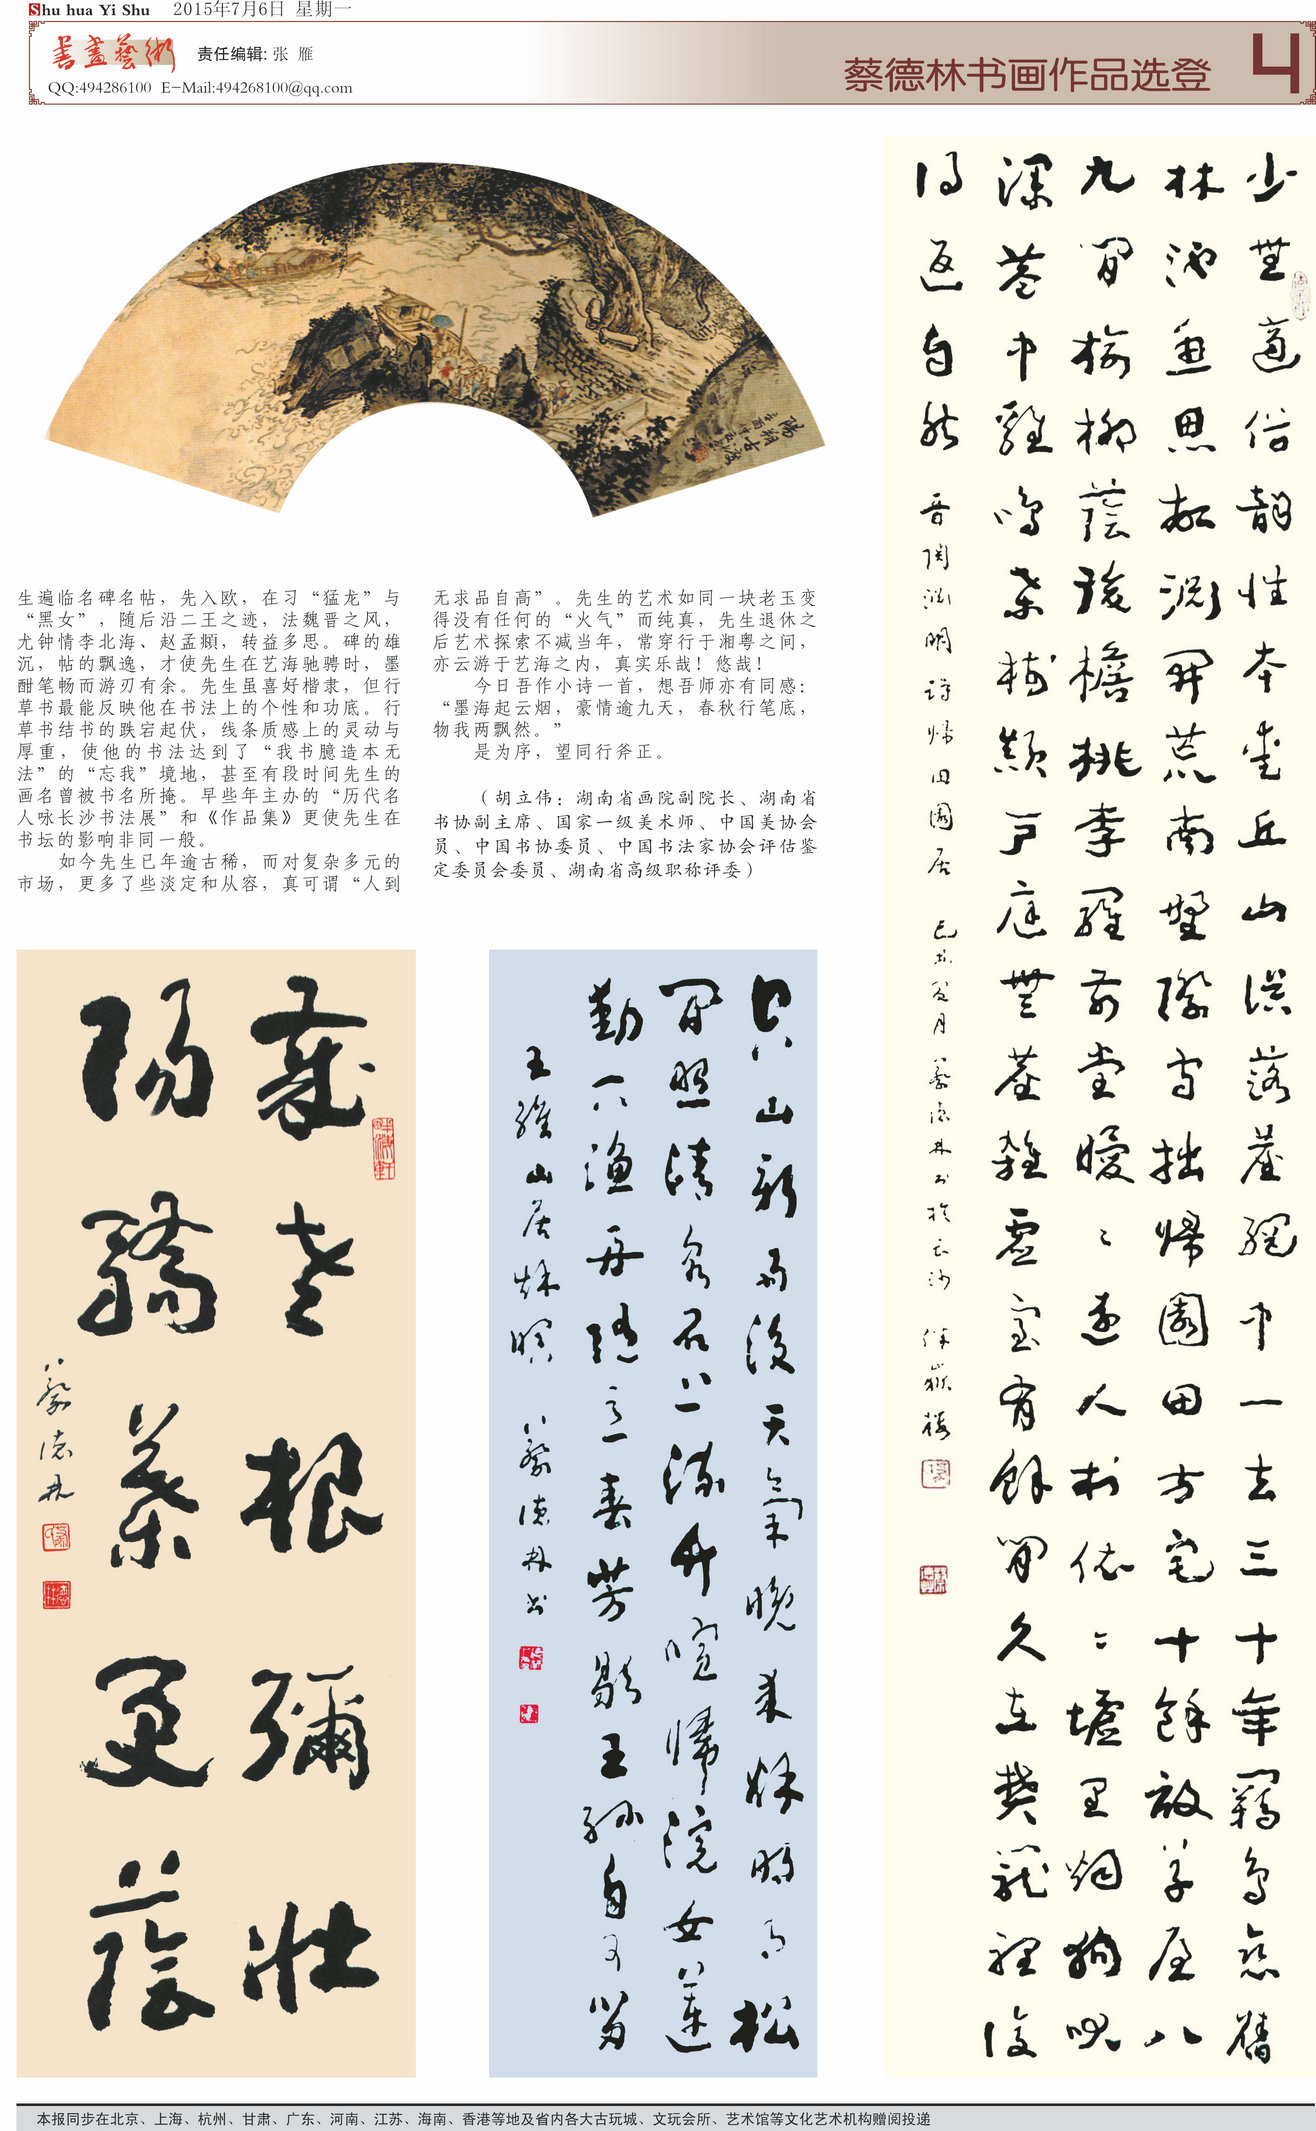 Shu hua Yi Shu 2015年7月6日 星期一
書畫藝術
责任编辑: 张 雁
QQ:494286100 E-Mail:494268100@qq.com
蔡德林书画作品选登
4
生遍临名碑名帖，先入欧，在习“猛龙”与
“黑女”，随后沿二王之迹，法魏晋之风，
尤钟情李北海、赵孟頫，转益多思。碑的雄
沉，帖的飘逸，才使先生在艺海驰骋时，墨
酣笔畅而游刃有余。先生虽喜好楷隶，但行
草书最能反映他在书法上的个性和功底。行
草书结书的跌宕起伏，线条质感上的灵动与
厚重，使他的书法达到了“我书臆造本无
法”的“忘我”境地，甚至有段时间先生的
画名曾被书名所掩。早些年主办的“历代名
人咏长沙书法展”和《作品集》更使先生在
书坛的影响非同一般。
如今先生已年逾古稀，而对复杂多元的
市场，更多了些淡定和从容，真可谓“人到
无求品自高”。先生的艺术如同一块老玉变
得没有任何的“火气”而纯真，先生退休之
后艺术探索不减当年，常穿行于湘粤之间，
亦云游于艺海之内，真实乐哉！悠哉！
今日吾作小诗一首，想吾师亦有同感：
“墨海起云烟，豪情逾九天，春秋行笔底，
物我两飘然。”
是为序，望同行斧正。
（胡立伟：湖南省画院副院长、湖南省
书协副主席、国家一级美术师、中国美协会
员、中国书协委员、中国书法家协会评估鉴
定委员会委员、湖南省高级职称评委）
少無適俗韻性本愛丘山誤落塵網中一去三十年羈鳥戀舊
林池魚思故淵開荒南野際守拙歸園田方宅十餘畝草屋八
九間榆柳蔭後檐桃李羅前堂曖〻遠人村依〻墟里烟狗吠
深巷中雞鳴桑樹顛戶庭無塵雜虛室有餘閒久在樊籠裡復
得返自然 晉陶淵明詩歸田園居 蔡德林书於长沙
空山新雨後天氣晚來秋明月松
間照清泉石上流竹喧歸浣女蓮
動下漁舟隨意春芳歇王孫自可留
王維山居秋暝 蔡德林书
歲老根彌壯
陽驕葉更蔭
蔡德林
本报同步在北京、上海、杭州、甘肃、广东、河南、江苏、海南、香港等地及省内各大古玩城、文玩会所、艺术馆等文化艺术机构赠阅投递